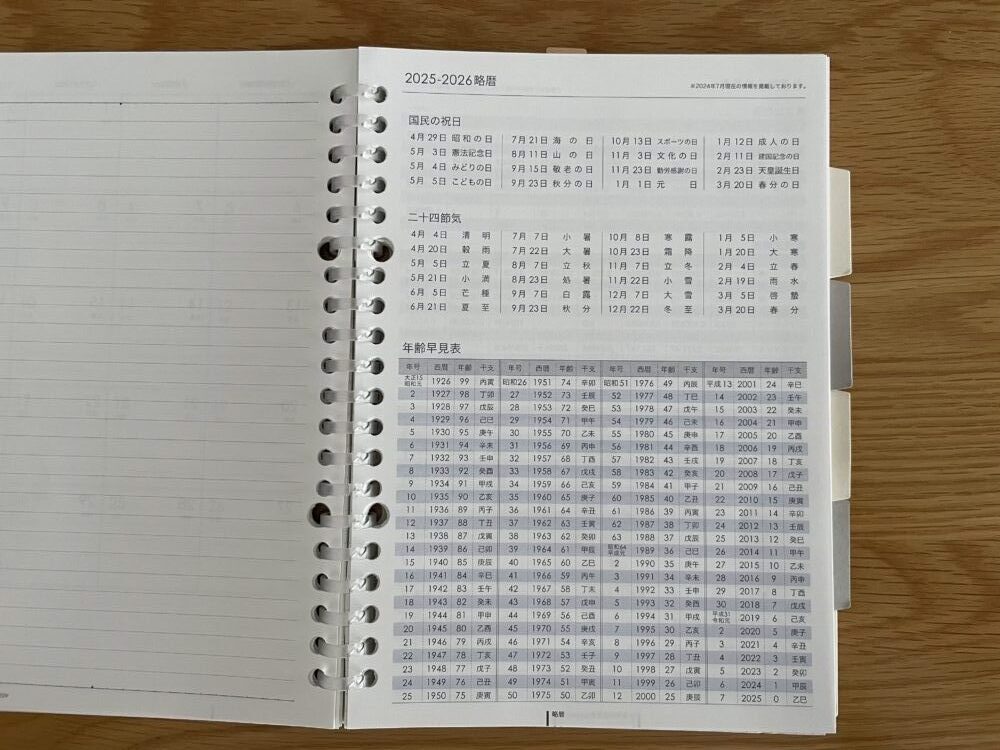 2025-2026略暦
※2024年7月現在の情報を掲載しております。
国民の祝日
4月29日 昭和の日 7月21日 海の日 10月13日 スポーツの日 1月12日 成人の日
5月 3日 憲法記念日 8月11日 山の日 11月 3日 文化の日 2月11日 建国記念の日
5月 4日 みどりの日 9月15日 敬老の日 11月23日 勤労感謝の日 2月23日 天皇誕生日
5月 5日 こどもの日 9月23日 秋分の日 1月 1日 元日 3月20日 春分の日
二十四節気
4月 4日 清明 7月 7日 小暑 10月 8日 寒露 1月 5日 小寒
4月20日 穀雨 7月22日 大暑 10月23日 霜降 1月20日 大寒
5月 5日 立夏 8月 7日 立秋 11月 7日 立冬 2月 4日 立春
5月21日 小満 8月23日 処暑 11月22日 小雪 2月19日 雨水
6月 5日 芒種 9月 7日 白露 12月 7日 大雪 3月 5日 啓蟄
6月21日 夏至 9月23日 秋分 12月22日 冬至 3月20日 春分
年齢早見表
年号 西暦 年齢 干支 年号 西暦 年齢 干支 年号 西暦 年齢 干支 年号 西暦 年齢 干支
大正15 昭和元 1926 99 丙寅 昭和26 1951 74 辛卯 昭和51 1976 49 丙辰 平成13 2001 24 辛巳
2 1927 98 丁卯 27 1952 73 壬辰 52 1977 48 丁巳 14 2002 23 壬午
3 1928 97 戊辰 28 1953 72 癸巳 53 1978 47 戊午 15 2003 22 癸未
4 1929 96 己巳 29 1954 71 甲午 54 1979 46 己未 16 2004 21 甲申
5 1930 95 庚午 30 1955 70 乙未 55 1980 45 庚申 17 2005 20 乙酉
6 1931 94 辛未 31 1956 69 丙申 56 1981 44 辛酉 18 2006 19 丙戌
7 1932 93 壬申 32 1957 68 丁酉 57 1982 43 壬戌 19 2007 18 丁亥
8 1933 92 癸酉 33 1958 67 戊戌 58 1983 42 癸亥 20 2008 17 戊子
9 1934 91 甲戌 34 1959 66 己亥 59 1984 41 甲子 21 2009 16 己丑
10 1935 90 乙亥 35 1960 65 庚子 60 1985 40 乙丑 22 2010 15 庚寅
11 1936 89 丙子 36 1961 64 辛丑 61 1986 39 丙寅 23 2011 14 辛卯
12 1937 88 丁丑 37 1962 63 壬寅 62 1987 38 丁卯 24 2012 13 壬辰
13 1938 87 戊寅 38 1963 62 癸卯 63 1988 37 戊辰 25 2013 12 癸巳
14 1939 86 己卯 39 1964 61 甲辰 昭和64 平成元 1989 36 己巳 26 2014 11 甲午
15 1940 85 庚辰 40 1965 60 乙巳 2 1990 35 庚午 27 2015 10 乙未
16 1941 84 辛巳 41 1966 59 丙午 3 1991 34 辛未 28 2016 9 丙申
17 1942 83 壬午 42 1967 58 丁未 4 1992 33 壬申 29 2017 8 丁酉
18 1943 82 癸未 43 1968 57 戊申 5 1993 32 癸酉 30 2018 7 戊戌
19 1944 81 甲申 44 1969 56 己酉 6 1994 31 甲戌 平成31 令和元 2019 6 己亥
20 1945 80 乙酉 45 1970 55 庚戌 7 1995 30 乙亥 2 2020 5 庚子
21 1946 79 丙戌 46 1971 54 辛亥 8 1996 29 丙子 3 2021 4 辛丑
22 1947 78 丁亥 47 1972 53 壬子 9 1997 28 丁丑 4 2022 3 壬寅
23 1948 77 戊子 48 1973 52 癸丑 10 1998 27 戊寅 5 2023 2 癸卯
24 1949 76 己丑 49 1974 51 甲寅 11 1999 26 己卯 6 2024 1 甲辰
25 1950 75 庚寅 50 1975 50 乙卯 12 2000 25 庚辰 7 2025 0 乙巳
略暦